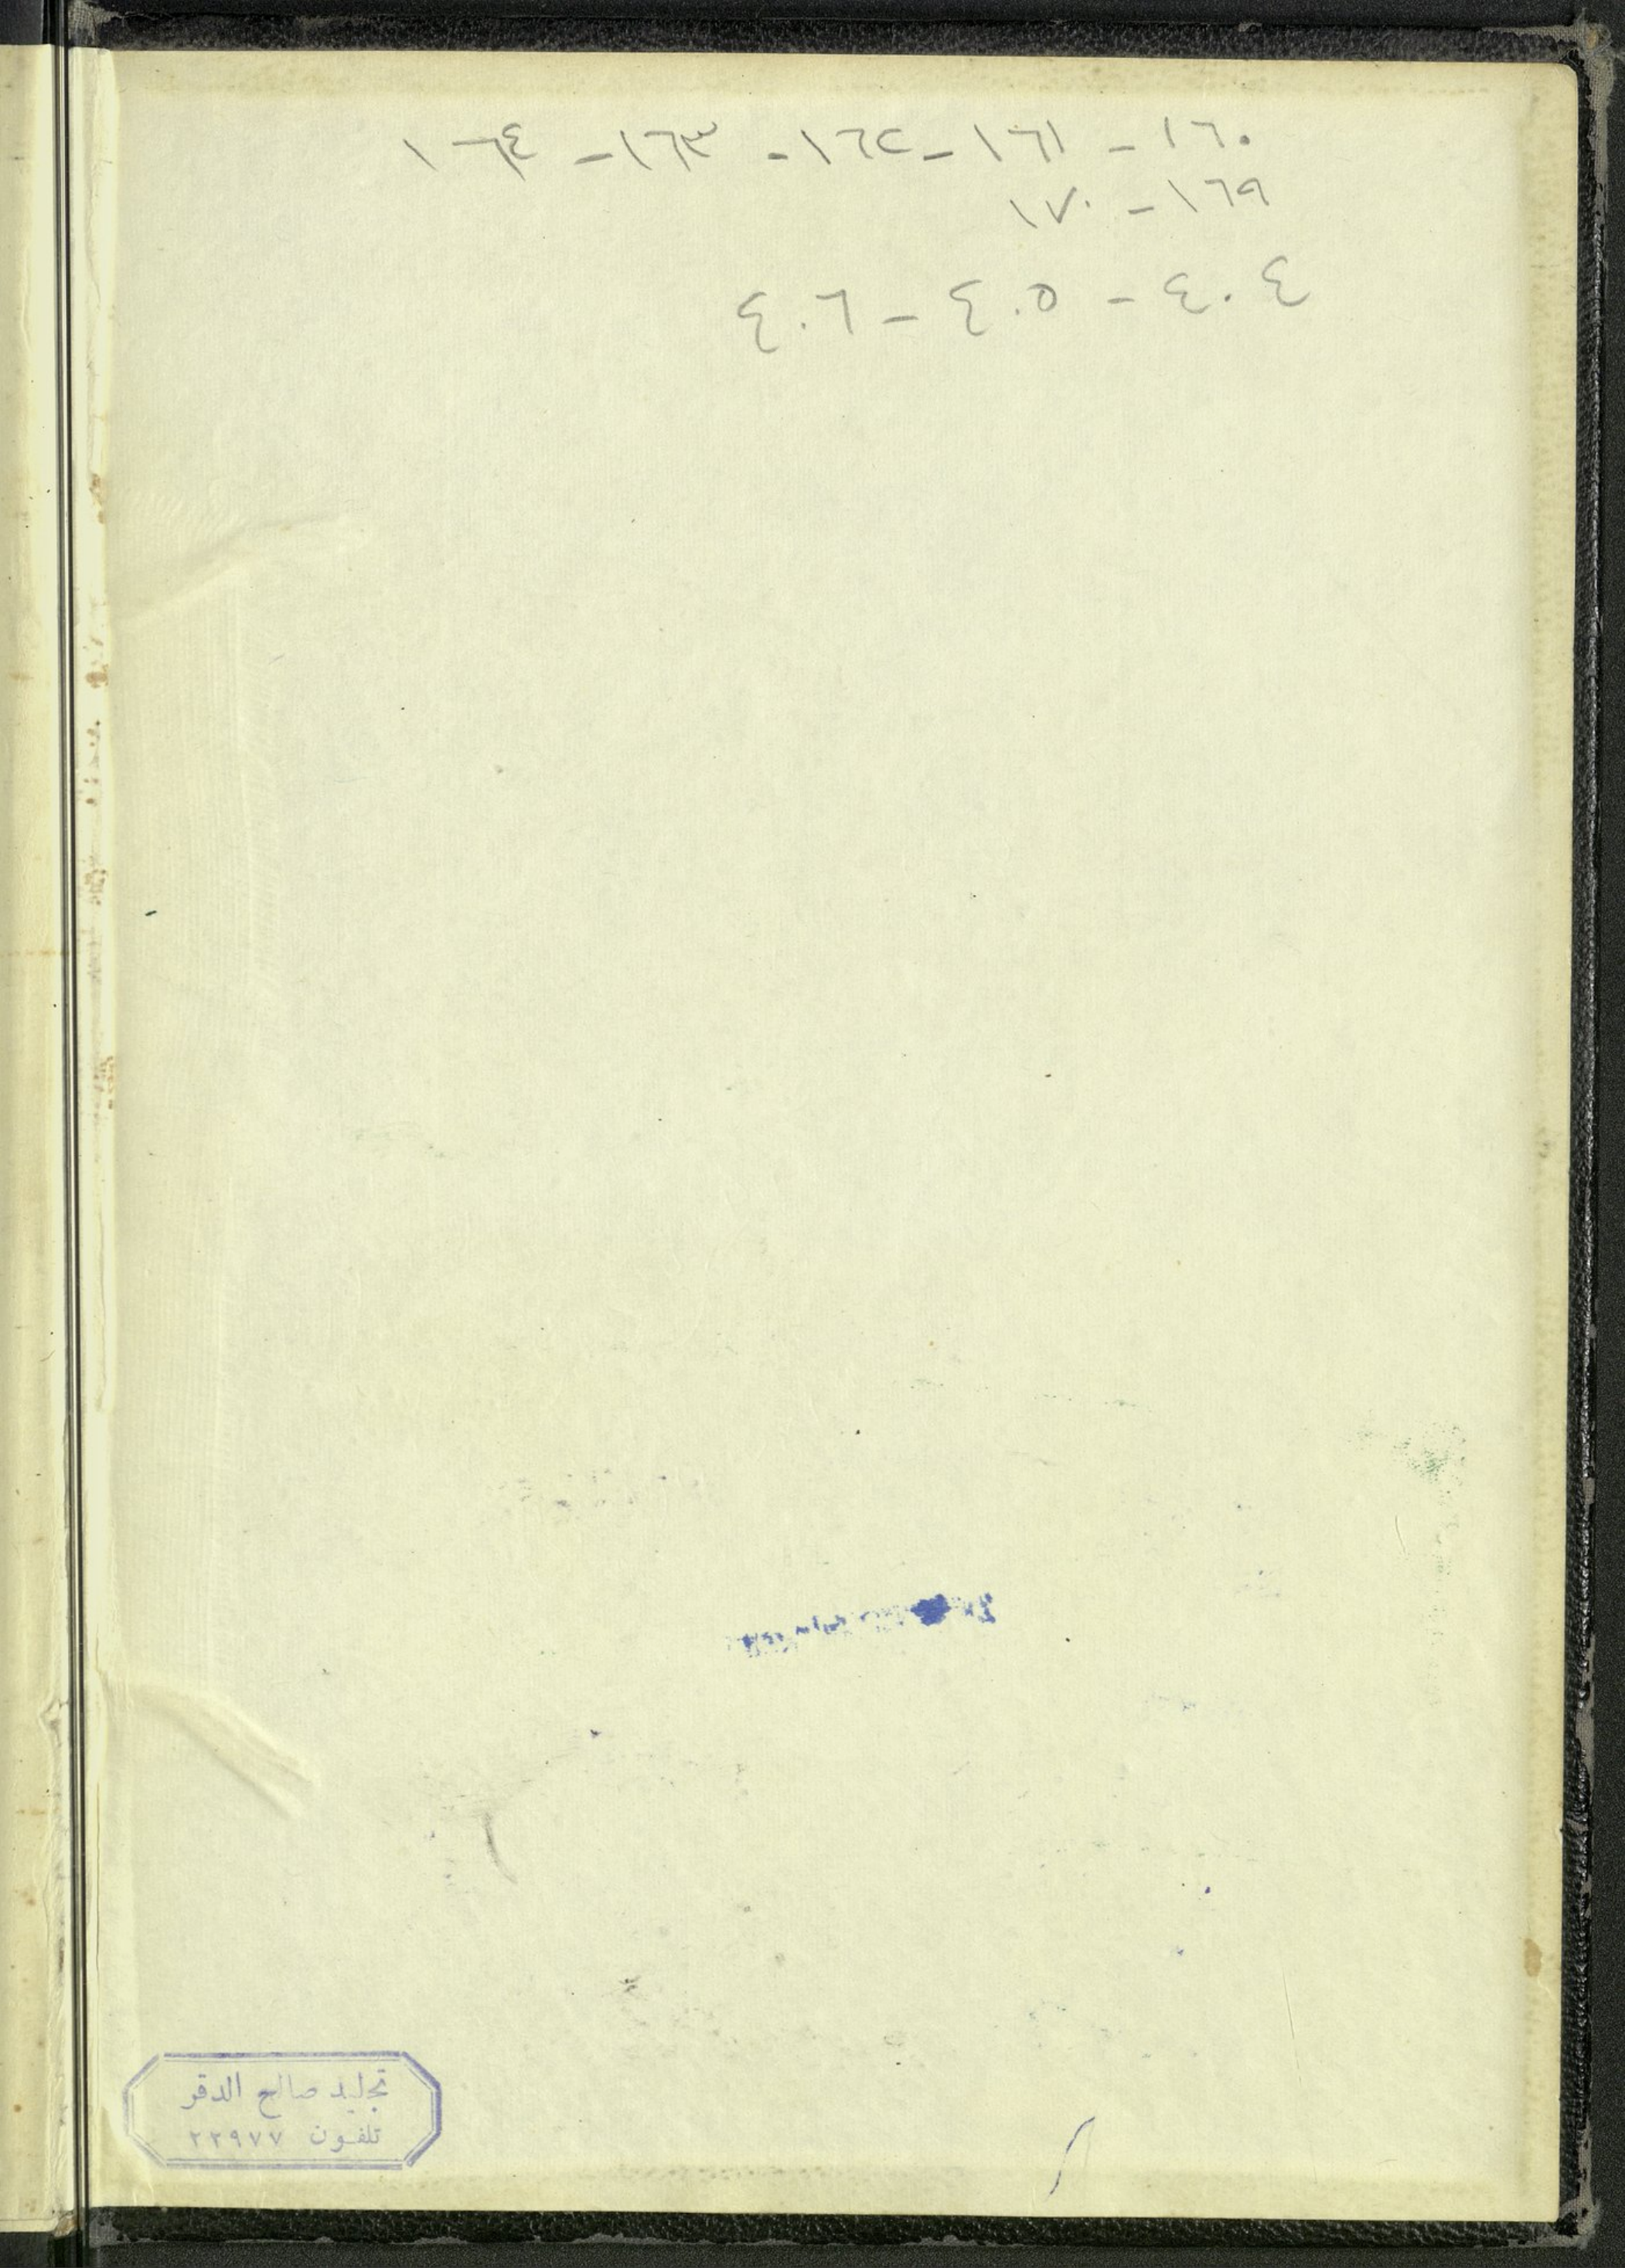 ١٦٠ - ١٦١ - ١٦٢ - ١٦٣ - ١٦٤
١٦٩ - ١٧٠
٤٠٤ - ٤٠٥ - ٤٠٦
تجليد صالح الدقر
تلفون ٢٢٩٧٧